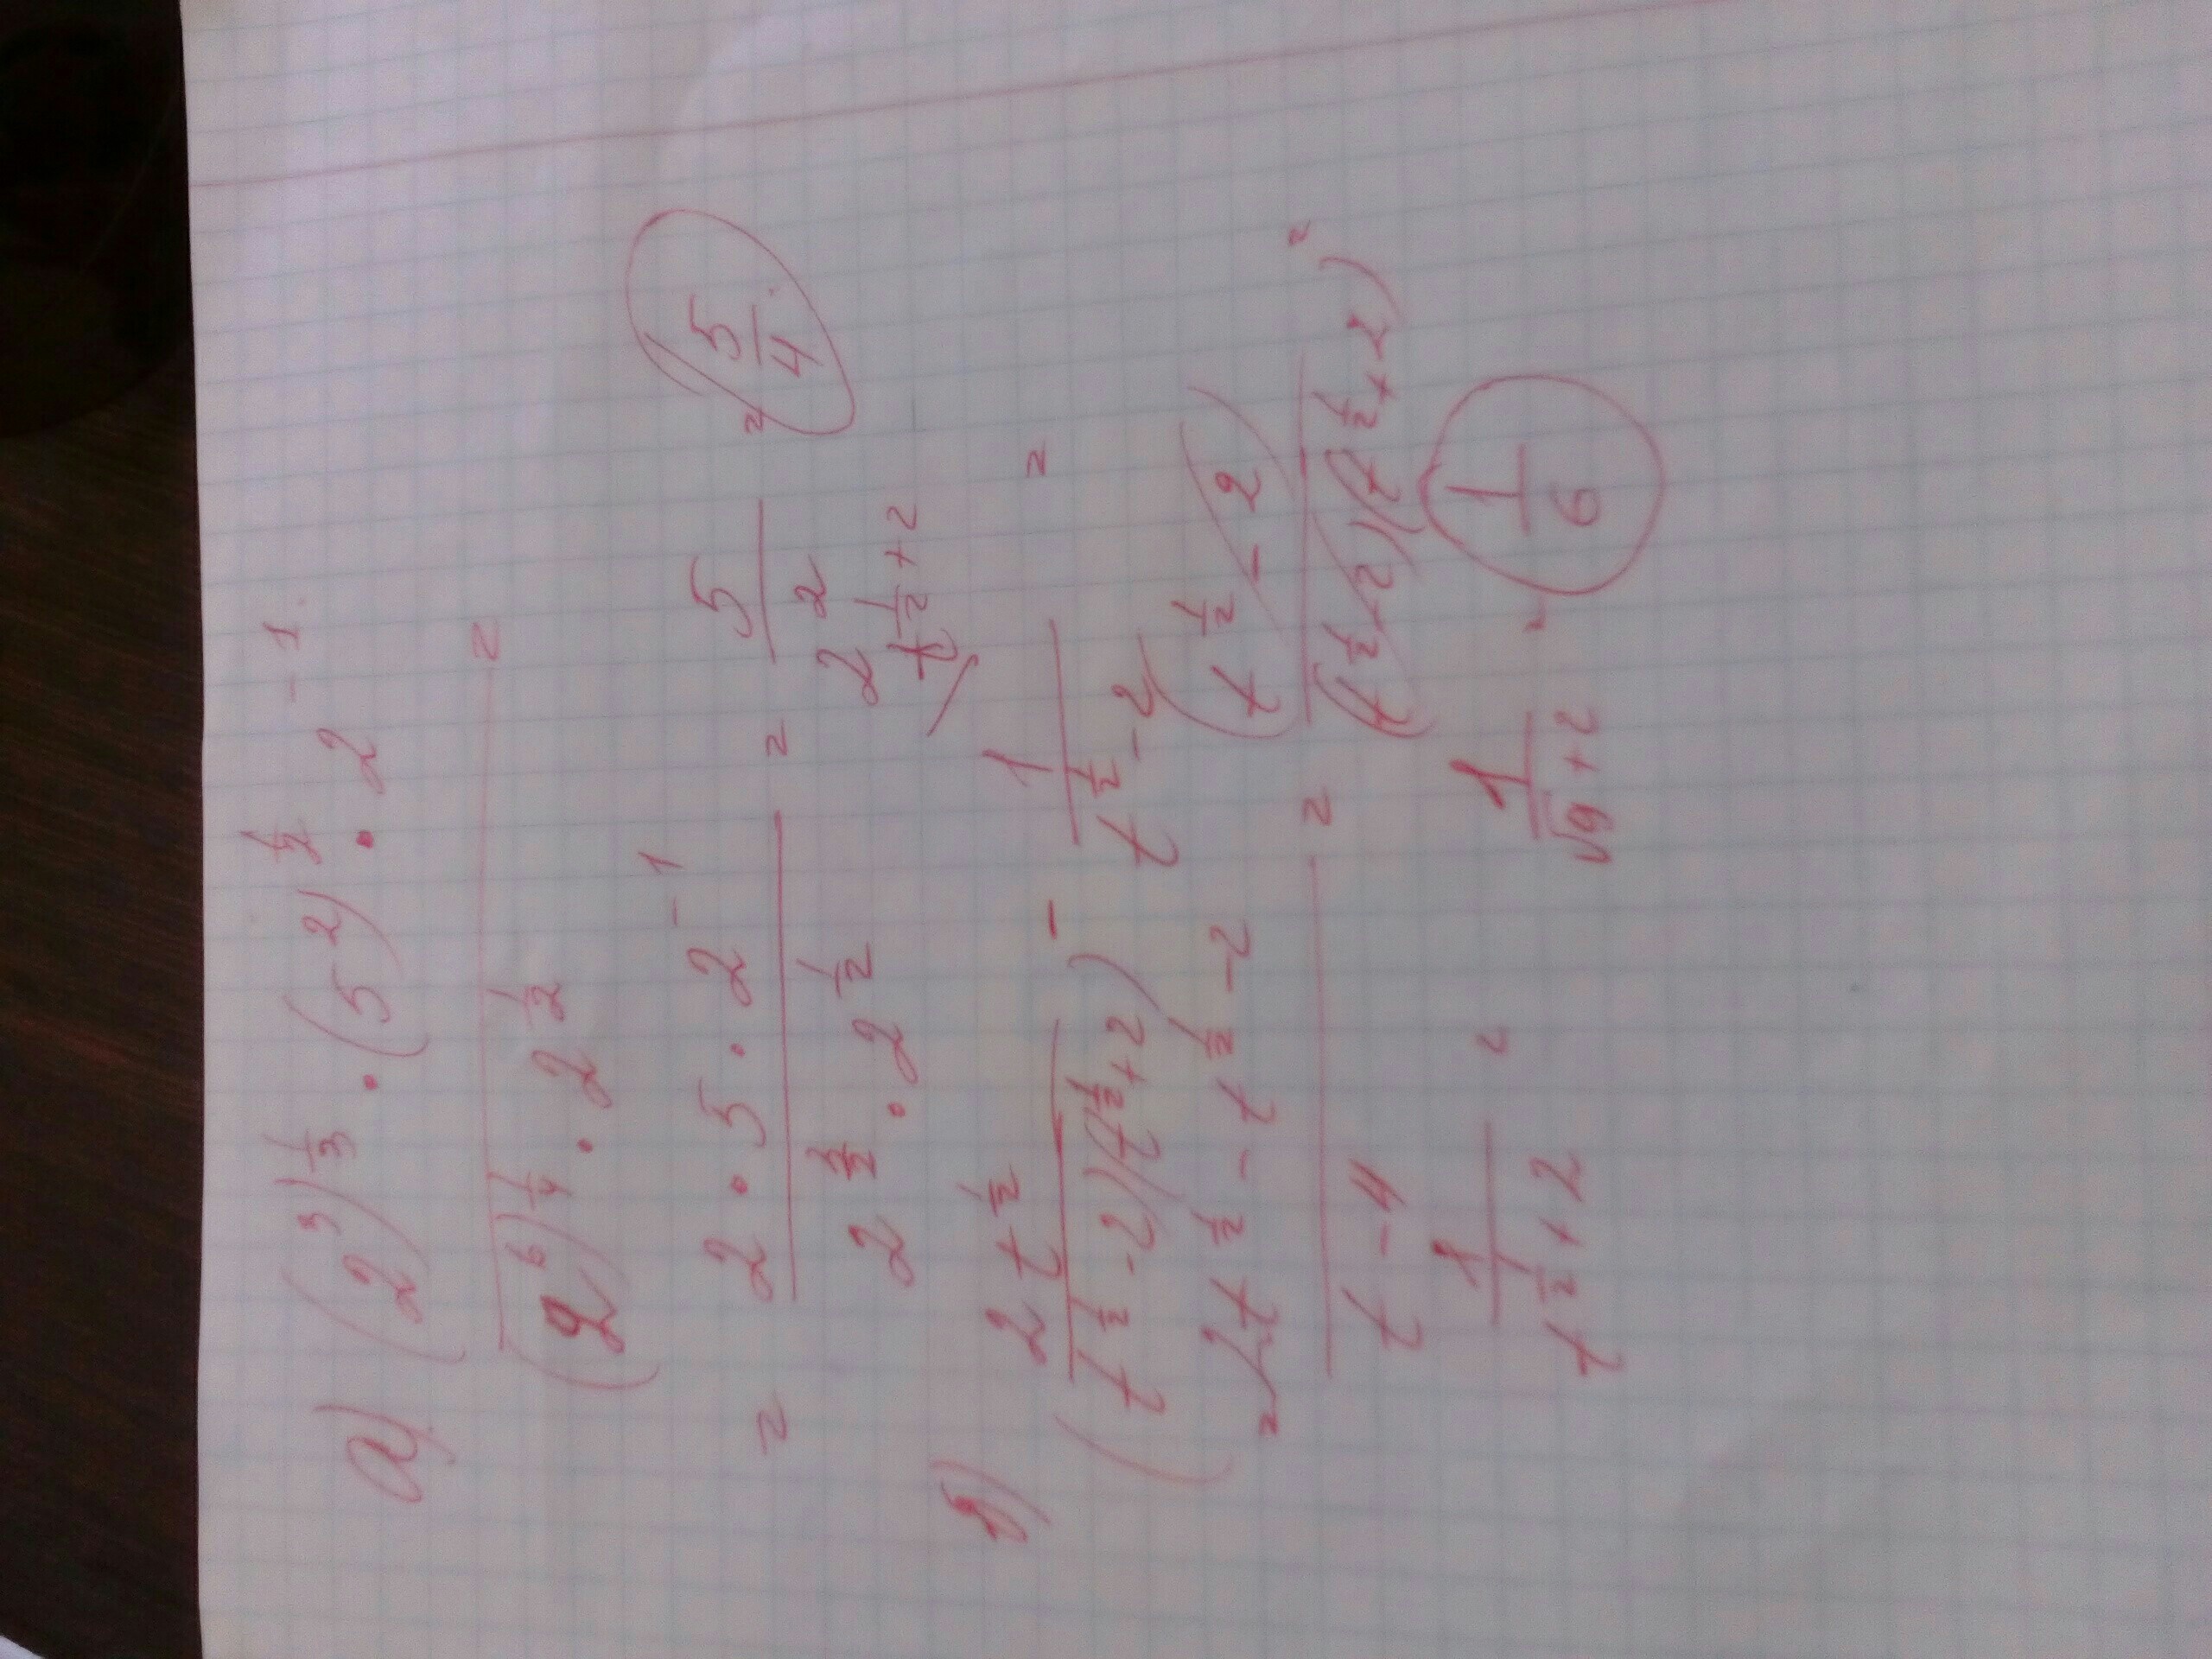 а) (2³)^(1/3) · (5²)^(1/2) · 2^(-1)
/ (2⁶)^(1/4) · 2^(1/2) =
= 2 · 5 · 2^(-1) / 2^(3/2) · 2^(1/2) = 5 / 2² = 5/4
б) (2t^(1/2) / (t^(1/2) - 2)(t^(1/2) + 2)) - 1 / t^(1/2) - 2 =
t^(1/2) + 2
= 2t^(1/2) - t^(1/2) - 2 / t - 4 = (t^(1/2) - 2) / (t^(1/2) - 2)(t^(1/2) + 2) =
1 / t^(1/2) + 2 = 1 / √9 + 2 = 1/6